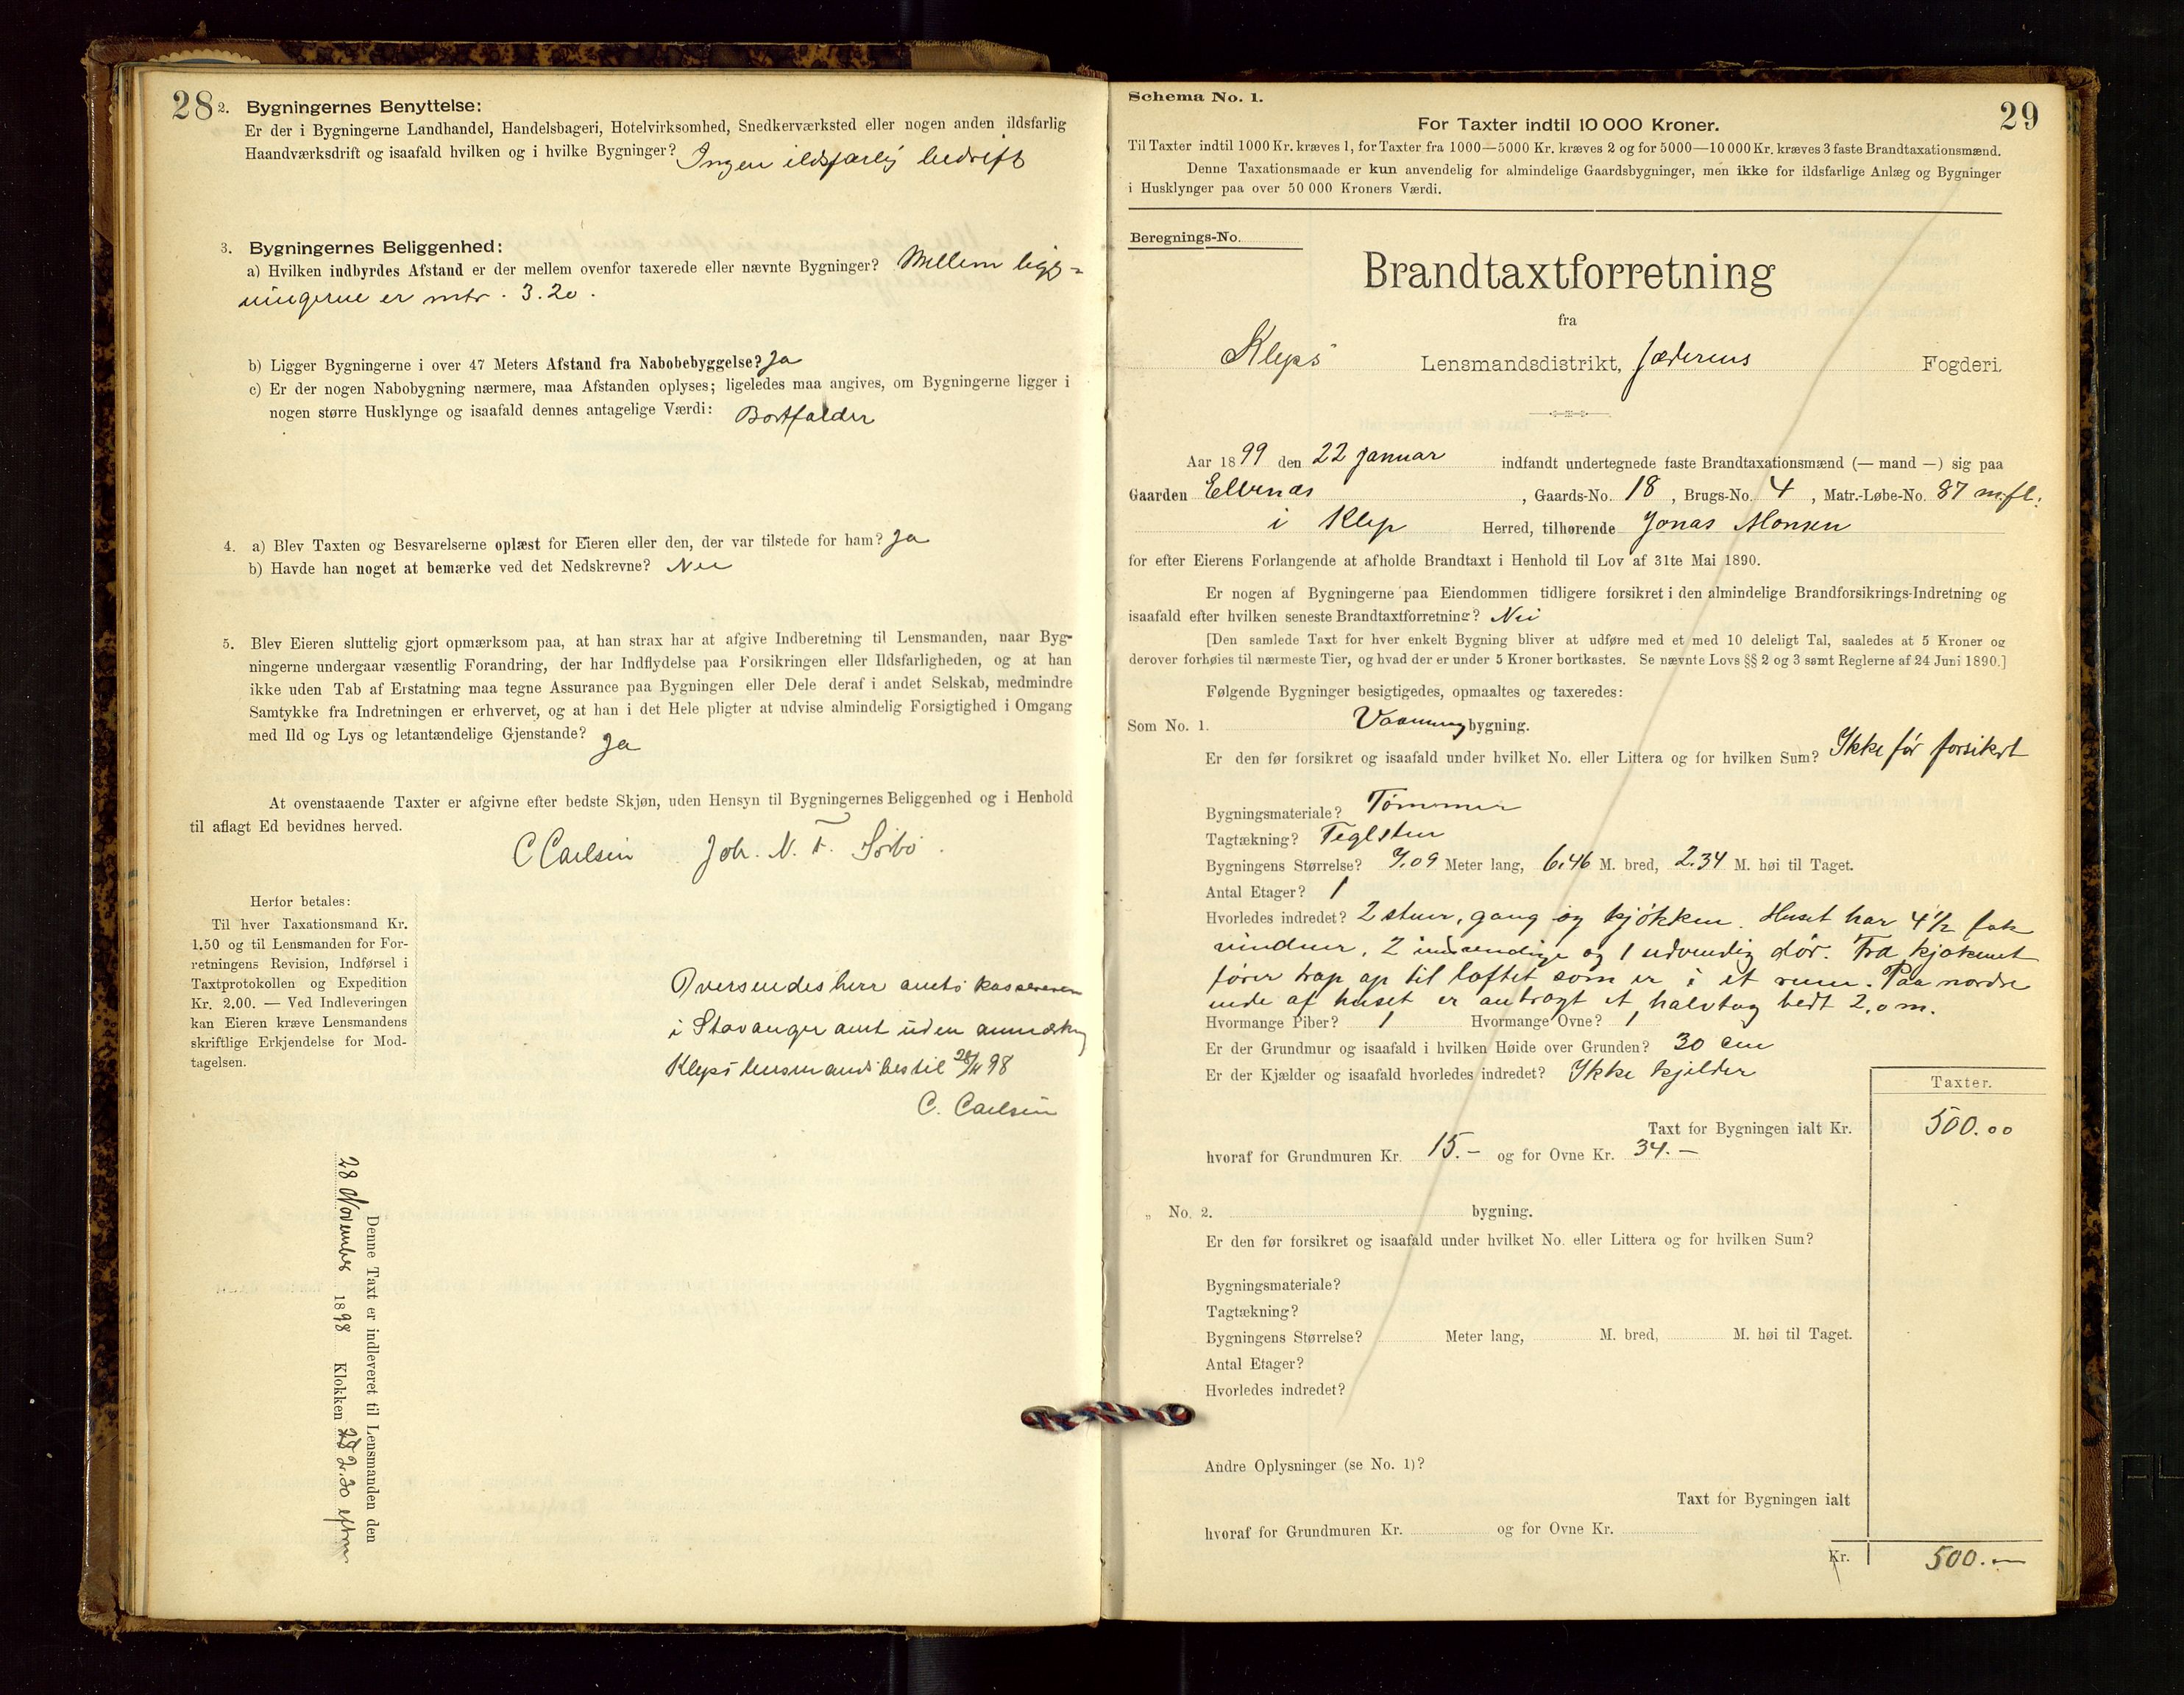 28
2. Bygningernes Benyttelse:
Er der i Bygningerne Landhandel, Handelsbageri, Hotelvirksomhed, Snedkerværksted eller nogen anden ildsfarlig
Haandværksdrift og isaafald hvilken og i hvilke Bygninger? Ingen ildsfarlig bedrift
3. Bygningernes Beliggenhed:
a) Hvilken indbyrdes Afstand er der mellem ovenfor taxerede eller nævnte Bygninger? Mellem byg-
ningerne er mtr. 3.20.
b) Ligger Bygningerne i over 47 Meters Afstand fra Nabobebyggelse? Ja
c) Er der nogen Nabobygning nærmere, maa Afstanden oplyses; ligeledes maa angives, om Bygningerne ligger i
nogen større Husklynge og isaafald dennes antagelige Værdi: Bortfalder
4. a) Blev Taxten og Besvarelserne oplæst for Eieren eller den, der var tilstede for ham? Ja
b) Havde han noget at bemærke ved det Nedskrevne? Nei
5. Blev Eieren sluttelig gjort opmærksom paa, at han strax har at afgive Indberetning til Lensmanden, naar Byg-
ningerne undergaar væsentlig Forandring, der har Indflydelse paa Forsikringen eller Ildsfarligheden, og at han
ikke uden Tab af Erstatning maa tegne Assurance paa Bygningen eller Dele deraf i andet Selskab, medmindre
Samtykke fra Indretningen er erhvervet, og at han i det Hele pligter at udvise almindelig Forsigtighed i Omgang
med Ild og Lys og letantændelige Gjenstande? Ja
At ovenstaaende Taxter er afgivne efter bedste Skjøn, uden Hensyn til Bygningernes Beliggenhed og i Henhold
til aflagt Ed bevidnes herved.
C Carlsen Joh. N. T. Sørbø.
Herfor betales:
Til hver Taxationsmand Kr.
1.50 og til Lensmanden for For-
retningens Revision, Indførsel i
Taxtprotokollen og Expedition
Kr. 2.00. — Ved Indleveringen
kan Eieren kræve Lensmandens
skriftlige Erkjendelse for Mod-
tagelsen.
Oversendes herr amtskassereren
i Stavanger amt uden anmærkn
Kleps lensmandsbestil 28/11 98
C. Carlsen
Denne Taxt er indleveret til Lensmanden den
28 November 1898 Klokken 2.30 eftm
Schema No. 1.
29
For Taxter indtil 10 000 Kroner.
Til Taxter indtil 1000 Kr. kræves 1, for Taxter fra 1000—5000 Kr. kræves 2 og for 5000—10 000 Kr. kræves 3 faste Brandtaxationsmænd.
Denne Taxationsmaade er kun anvendelig for almindelige Gaardsbygninger, men ikke for ildsfarlige Anlæg og Bygninger
i Husklynger paa over 50 000 Kroners Værdi.
Beregnings-No.
Brandtaxtforretning
fra
Kleps Lensmandsdistrikt, Jæderens Fogderi.
Aar 1899 den 22 Januar indfandt undertegnede faste Brandtaxationsmænd (— mand —) sig paa
Gaarden Elvenæs, Gaards-No. 18, Brugs-No. 4, Matr.-Løbe-No. 87 m.fl.
i Klep Herred, tilhørende Jonas Monsen
for efter Eierens Forlangende at afholde Brandtaxt i Henhold til Lov af 31te Mai 1890.
Er nogen af Bygningerne paa Eiendommen tidligere forsikret i den almindelige Brandforsikrings-Indretning og
isaafald efter hvilken seneste Brandtaxtforretning? Nei
[Den samlede Taxt for hver enkelt Bygning bliver at udføre med et med 10 deleligt Tal, saaledes at 5 Kroner og
derover forhøies til nærmeste Tier, og hvad der er under 5 Kroner bortkastes. Se nævnte Lovs §§ 2 og 3 samt Reglerne af 24 Juni 1890.]
Følgende Bygninger besigtigedes, opmaaltes og taxeredes:
Som No. 1. Vaaningbygning.
Er den før forsikret og isaafald under hvilket No. eller Littera og for hvilken Sum? Ikke før forsikret
Bygningsmateriale? Tømmer
Tagtækning? Teglsten
Bygningens Størrelse? 9.09 Meter lang, 6.46 M. bred, 2.34 M. høi til Taget.
Antal Etager? 1
Hvorledes indredet? 2 stuer, gang og kjøkken. Huset har 4½ fak
vinduer, 2 indvendige og 1 udvendig dør. Fra kjøkenet
fører trap op til loftet som er i et rum. Paa nordre
ende af huset er anbragt et halvtag bredt 2.0 m.
Hvormange Piber? 1 Hvormange Ovne? 1
Er der Grundmur og isaafald i hvilken Høide over Grunden? 30 cm
Er der Kjælder og isaafald hvorledes indredet? Ikke kjelder
Taxter.
Taxt for Bygningen ialt Kr. 500.00
hvoraf for Grundmuren Kr. 15.- og for Ovne Kr. 34.-
„ No. 2. bygning.
Er den før forsikret og isaafald under hvilket No. eller Littera og for hvilken Sum?
Bygningsmateriale?
Tagtækning?
Bygningens Størrelse? Meter lang, M. bred, M. høi til Taget.
Antal Etager?
Hvorledes indredet?
Andre Oplysninger (se No. 1)?
Taxt for Bygningen ialt
hvoraf for Grundmuren Kr. og for Ovne Kr.
Kr. 500.-